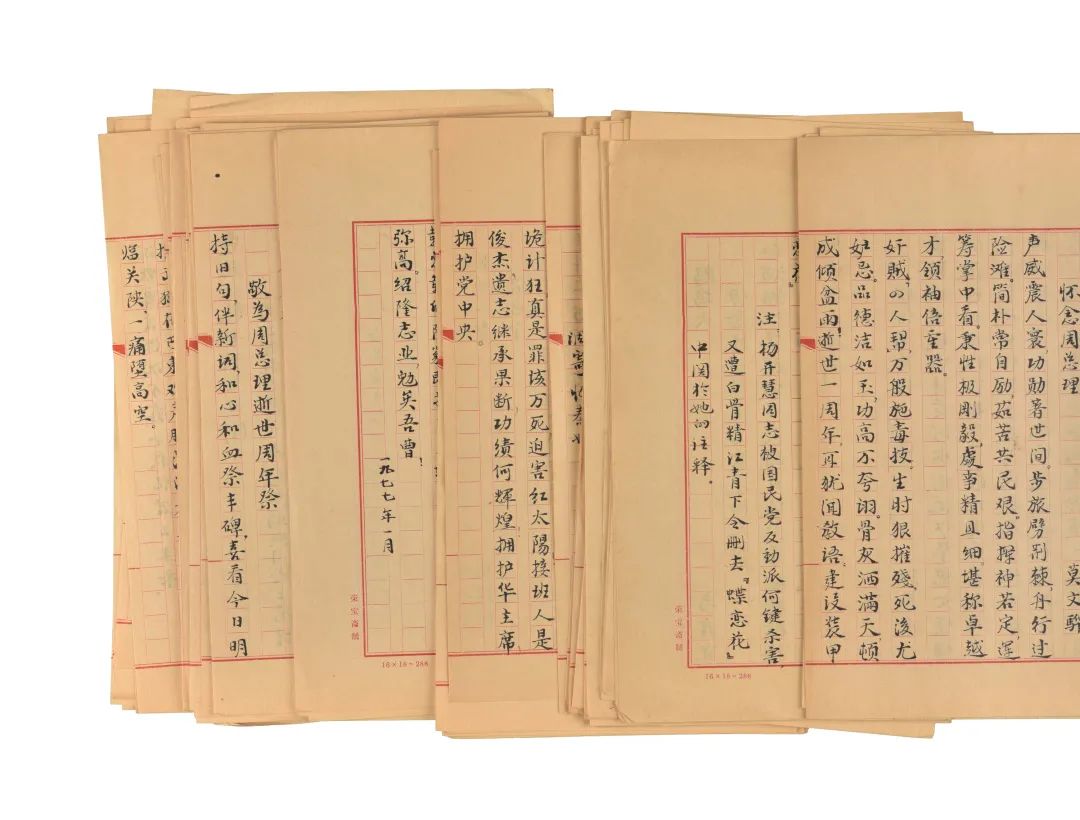 怀念周总理
莫文骅
声威震人寰功勋著世间。步旅劈荆棘,舟行过
险滩。简朴常自励,茹苦共民艰。指挥神若定,运
筹掌中看。秉性极刚毅,处事精且细。堪称卓越
才领袖倍重器。
奸贼,四人帮,万般施毒技。生时狠摧残,死后尤
妒忌。品德洁如玉,功高不夸诩。骨灰洒满天顿
成倾盆雨!逝世一周年,耳犹闻教语:建设装甲
注:杨开慧同志被国民党反动派何键杀害,
又遭白骨精江青下令删去『蝶恋花』
中关於她的注释。
荣宝斋制
16×18=288
诡计狂,真是罪该万死迫害红太阳接班人是
俊杰,遗志继承果断功绩何辉煌拥护华主席
拥护党中央。
弥高。绍隆志业,勉英吾曹!
一九七七年一月
荣宝斋制
16×18=288
敬为周总理逝世周年祭
持旧句,伴新词,和心和血祭丰碑,喜看今日明
关陕,一痛堕高空。